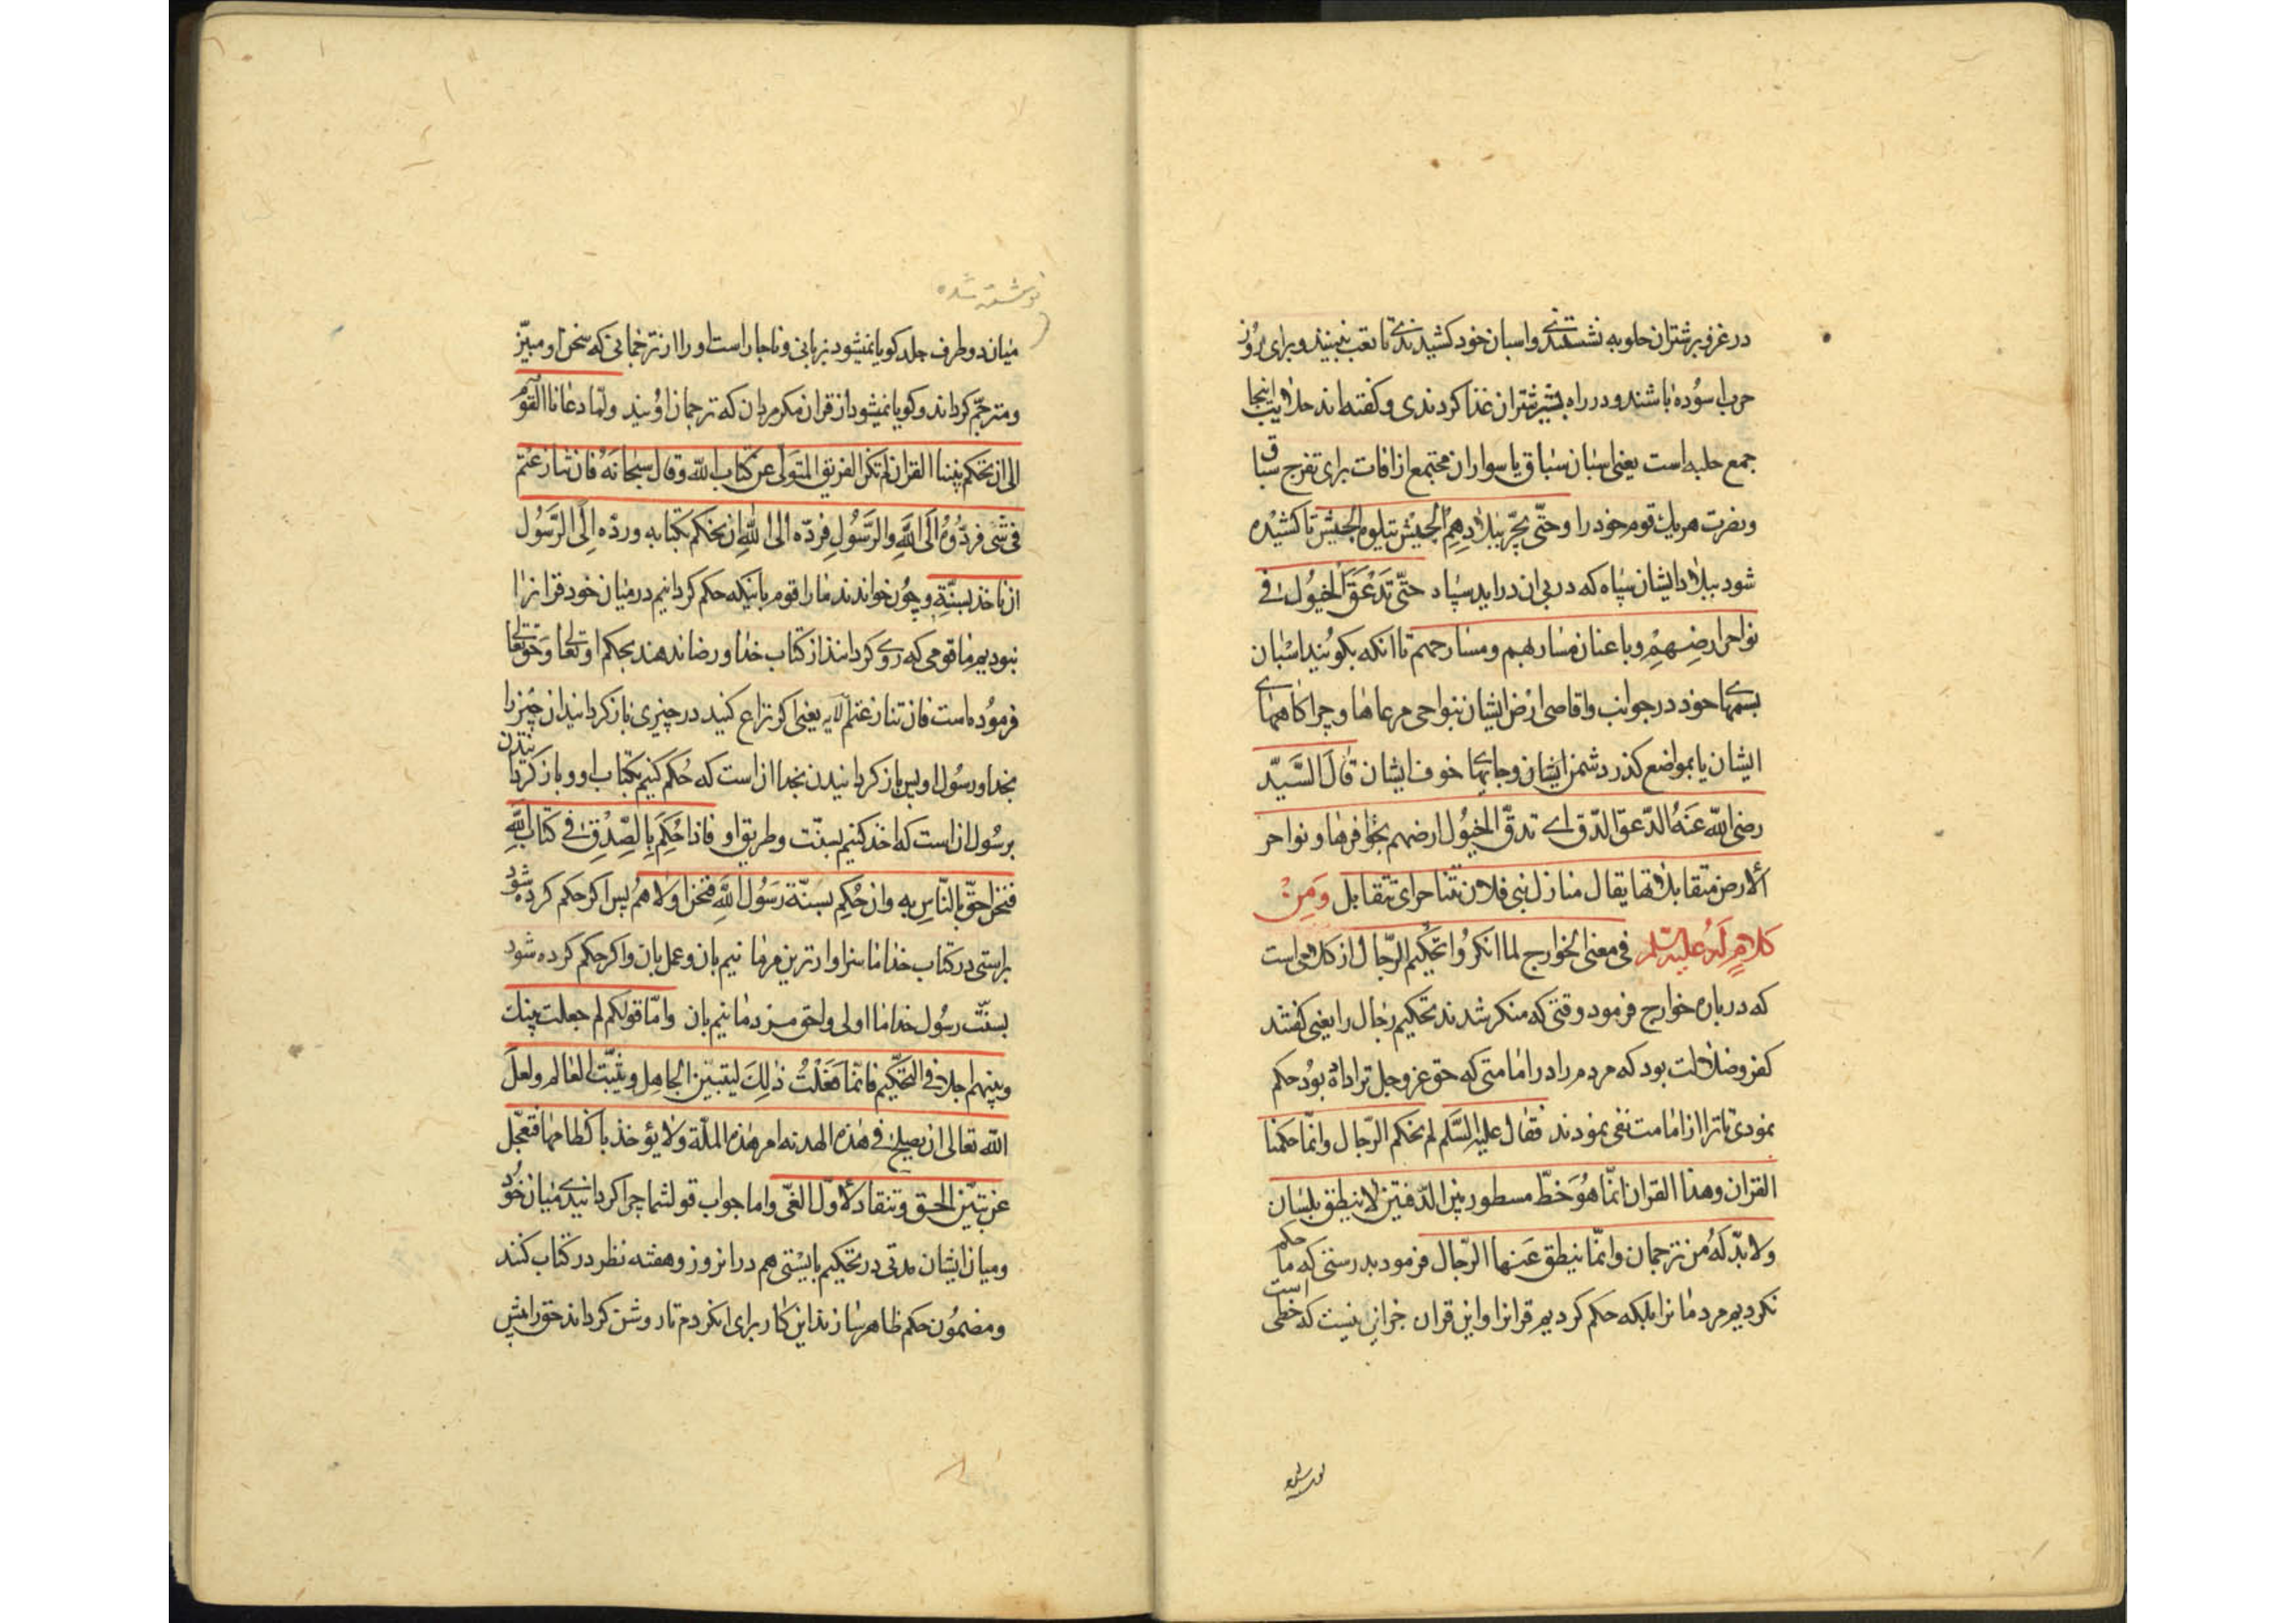 در غزو بر شتران حلوبه نشستندی و اسبان خود کشیدندی تا تعب نبینند و برای روز
حرب اسوده باشند و در راه بشیر شتران غذا کردندی و کفته‌اند حلایب اینجا
جمع حلبه است یعنی اسبان سباق یا سواران مجتمع از افات برای تفرج سباق
و نصرت هر یك قوم خود را و حتّی یجّر ببلادِهِمِ الجیشُ یتلوه الجیش تا کشیده
شود ببلاد ایشان سپاه که در پی ان دراید سپاه حتّی تَدْعَقَ الخیُولُ فی
نواحر ارضِهِمْ و باعنان مساربهم و مسارحهم تا انکه بکوبند اسبان
بسمهای خود در جوانب و اقاصی ارض ایشان بنواحی مرعاها و چراکاههای
ایشان یا بمواضع کذر دشمن ایشان و جایهای خوف ایشان قال السَّیّد
رضی اللّه عَنهُ الدّعق الدّق ای تدقّ الخیُول ارضهم بحوافرها و نواحر
الارض متقابلاتها یقال منازل بنی فلان تتناحر ای تتقابل وَمِنْ
کلامٍ لَهُ علیه السّلم فی معنی الخوارج لما انکرُوا تحکیم الرّجال از کلامی است
که در باره خوارج فرمود وقتی که منکر شدند تحکیم رجال را یعنی کفتند
کفر و ضلالت بود که مردم را در امامتی که حق عز و جل ترا داده بود حکم
نمودی تا ترا از امامت نفی نمودند فقال علیه السّلم لم نحکم الرّجال و انّما حکمنا
القران و هذا القران انّما هُوَ خطّ مسطور بین الدّفتین لا ینطق بلسان
ولا بدّ لَهُ من ترجمان و انّما ینطق عَنها الرّجال فرمود بدرستی که ما حکم
نکردیم مردمانرا بلکه حکم کردیم قرانرا و این قران جز این نیست که خطی است
نوشته شده
میان دو طرف جلد کویا نمیشود بزبانی و ناچار است او را از ترجمانی که سخن او مبیّن
و مترجّم کرداند و کویا نمیشود از قران مکر مردان که ترجمان اویند و لمّا دعانا القوم
الی ان نحکم بیننا القران لم نکن الفریق المتولّی عن کتاب اللّه و قال سبحانه فان تنازعتم
فی شی فردّوه الی اللّه و الرّسول فردّه الی اللّه ان نحکم بکتابه و ردّه الی الرّسُول
ان ناخذ بسنّتِهِ و چون خواندند ما را قوم بانیکه حکم کردانیم در میان خود قرانرا
نبودیم ما قومی که روی کردانند از کتاب خدا و رضا ندهند بحکم او تعالی و حق تعالی
فرموده است فان تنازعتم الآیه یعنی اکر نزاع کنید در چیزی باز کردانید ان چیز را
بخدا و رسُول او پس باز کردانیدن بخدا ان است که حُکم کنیم بکتاب او و باز کردانیدن
برسُول ان است که اخذ کنیم بسنّت و طریق او فاذا حُکِمَ بِالصِّدْقِ فی کتاب اللّهِ
فنحن احقّ النّاس به و ان حُکِم بسنّة رَسُول اللّه فنحن اولاهُم پس اکر حکم کرده شود
براستی در کتاب خدا ما سزاوارترین مردمانیم بان و عمل بان و اکر حکم کرده شود
بسنّت رسُول خدا ما اولی و احق مردمانیم بان و امّا قولکم لم جعلت بینك
و بینهم اجلا فی التّحکیم فانّما فَعَلْتُ ذلِكَ لیتبیّن الجاهل و یتثبّت العالم و لعلّ
اللّه تعالی ان یصلح فی هذه الهدنه امر هذه الملّة ولا یؤخذ باکظامها فتعجّل
عن تبیّن الحق و تنقاد لاوّل الغیّ و اما جواب قول شما چرا کردانیدی میان خود
و میان ایشان مدتی در تحکیم بایستی هم در انروز و هفته نظر در کتاب کنند
و مضمون حکم ظاهر سازند این کار برای ان کردم تا روشن کرداند حق را پیش